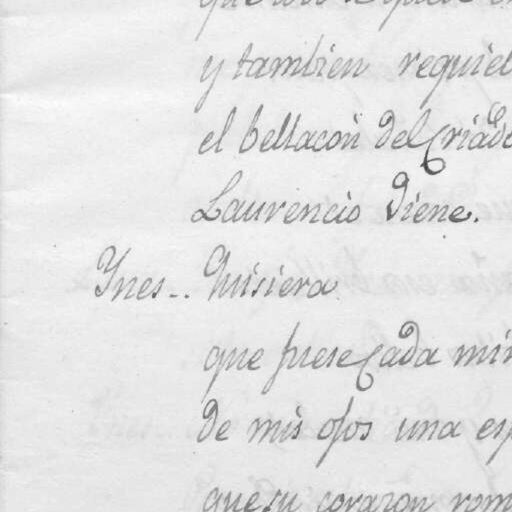 y tambien requieb
el bellacon del Criado
Laurencio viene.
Ynes.. Quisiera
que fuese Cada mir
de mis ojos una esp
que su corazon rom